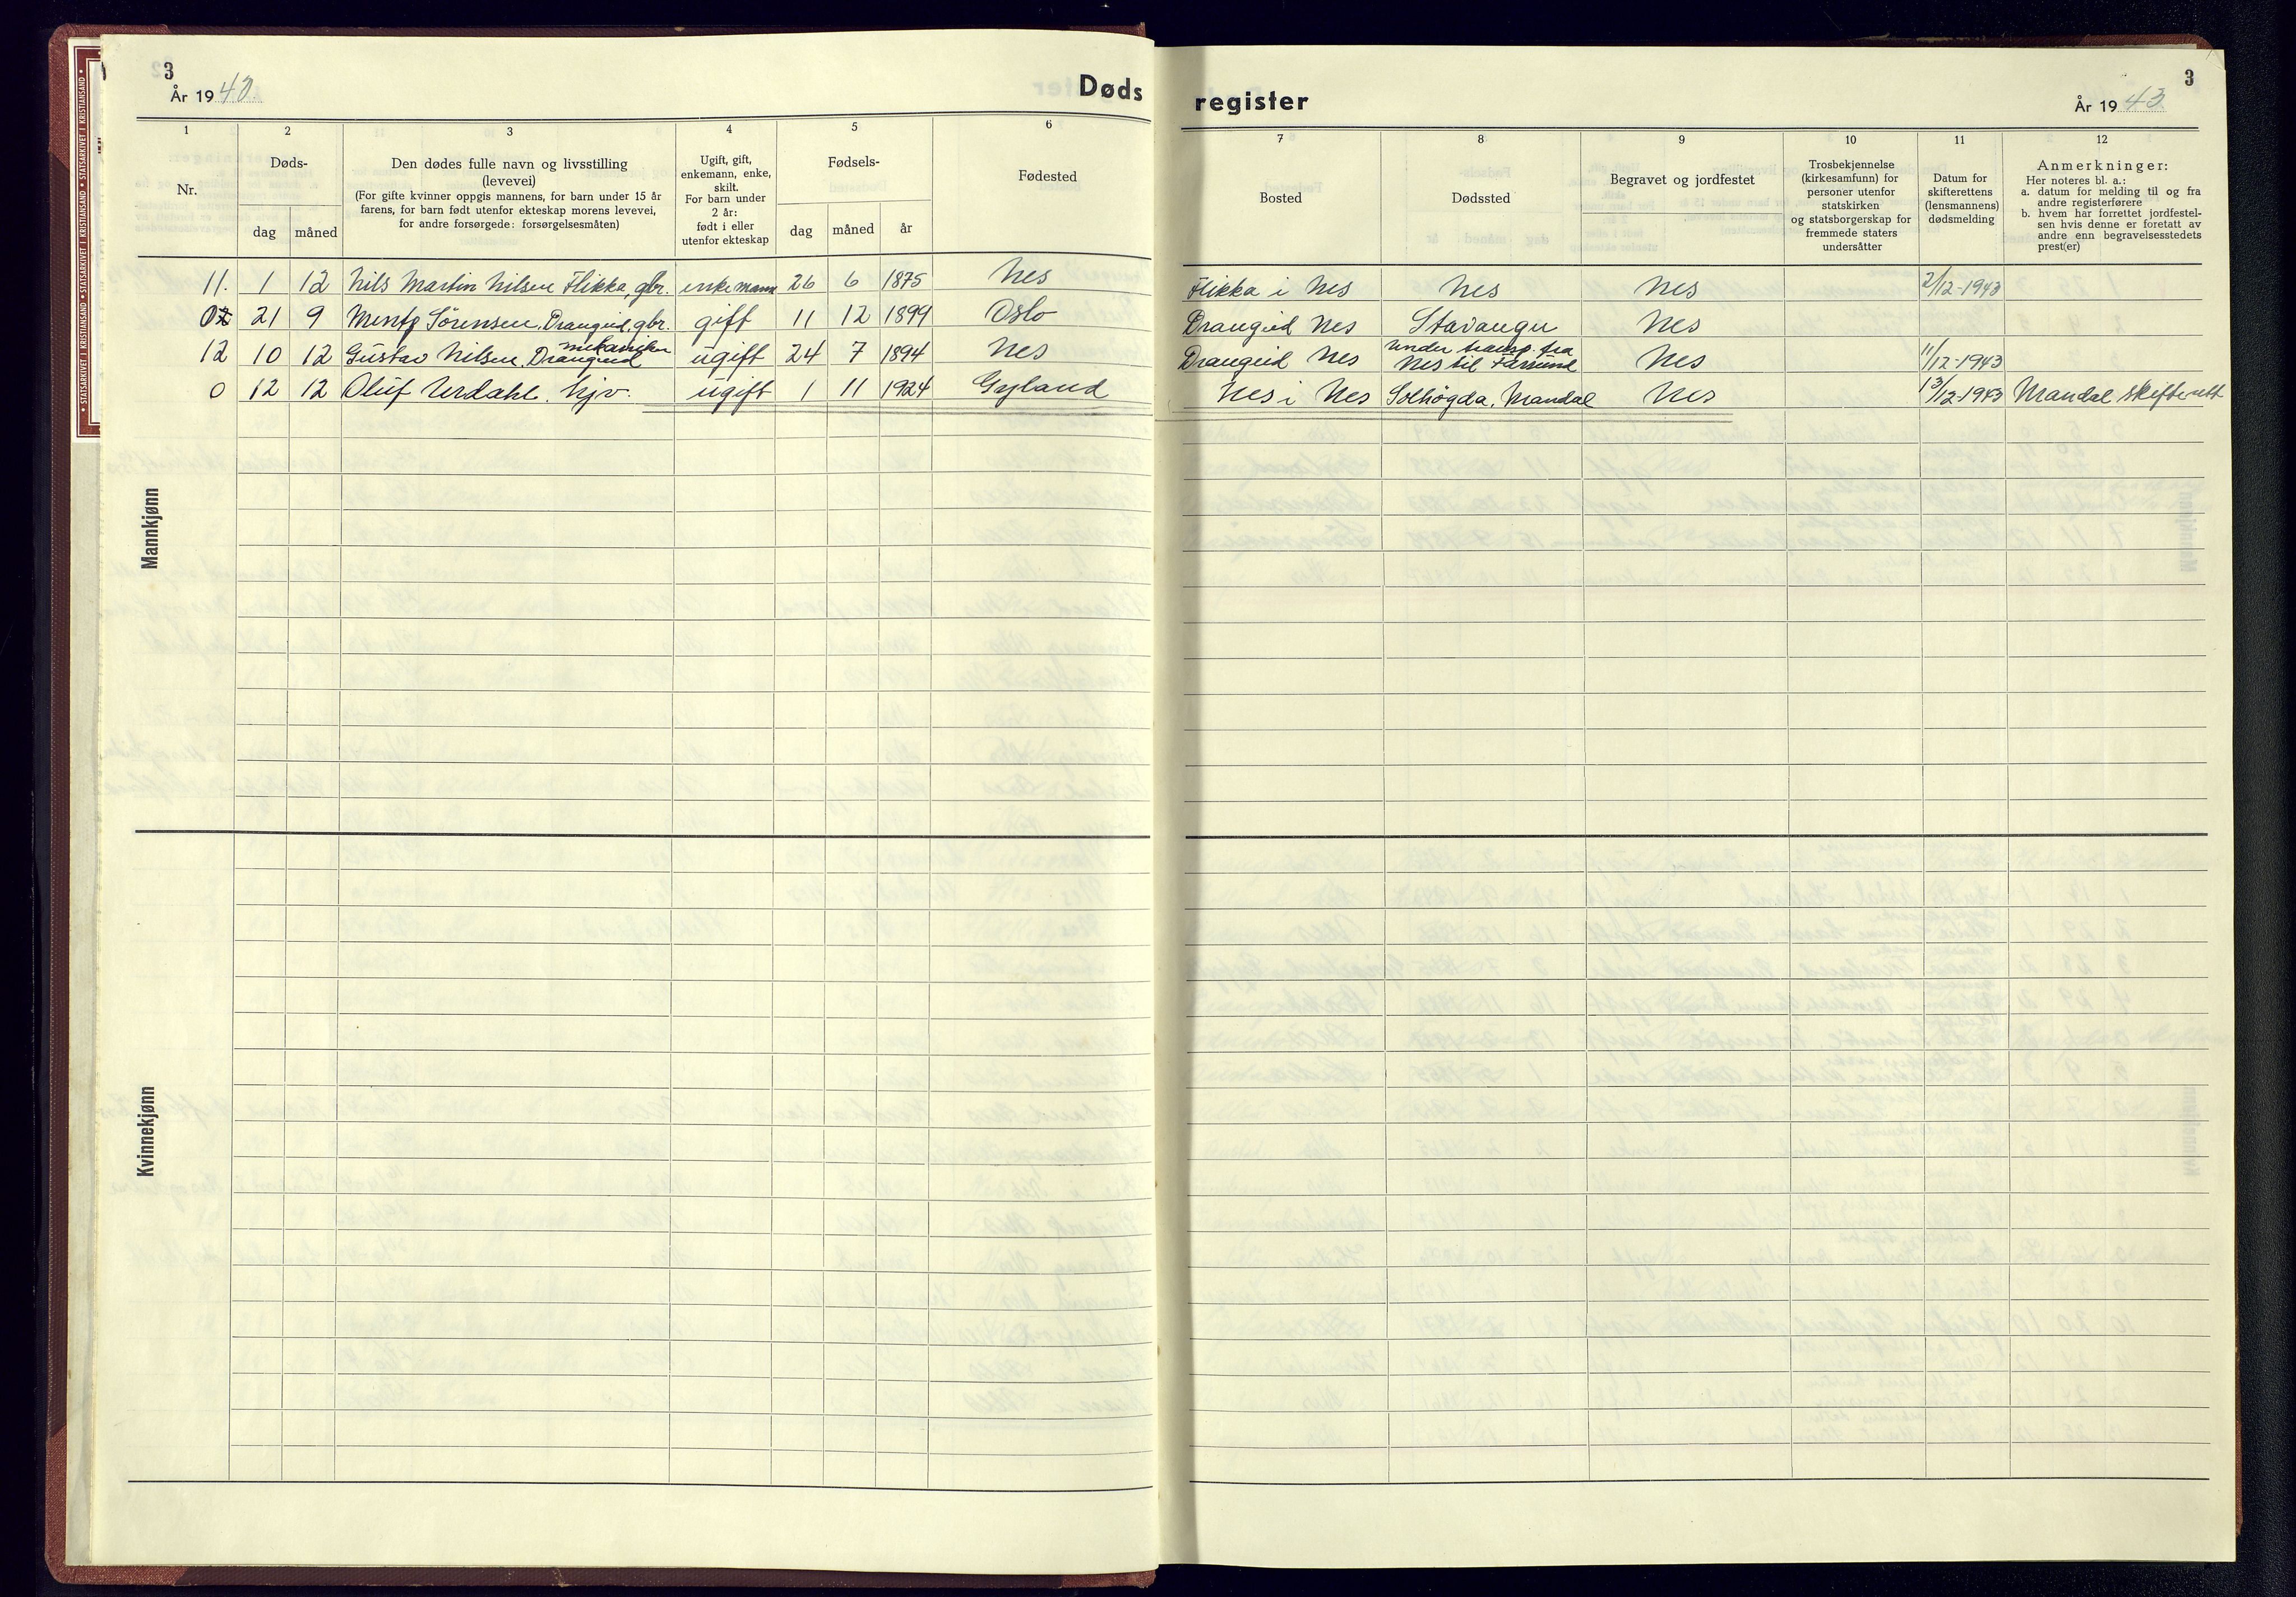 3
År 1943.
Døds
register
3
År 1943.
1
2
3
4
5
6
7
8
9
10
11
12
Nr.
Døds-
dag
måned
Den dødes fulle navn og livsstilling
(levevei)
(For gifte kvinner oppgis mannens, for barn under 15 år
farens, for barn født utenfor ekteskap morens levevei,
for andre forsørgede: forsørgelsesmåten)
Ugift, gift,
enkemann, enke,
skilt.
For barn under
2 år:
født i eller
utenfor ekteskap
Fødsels-
dag
måned
år
Fødested
Bosted
Dødssted
Begravet og jordfestet
Trosbekjennelse
(kirkesamfunn) for
personer utenfor
statskirken
og statsborgerskap for
fremmede staters
undersåtter
Datum for
skifterettens
(lensmannens)
dødsmelding
Anmerkninger:
Her noteres bl. a.:
a. datum for melding til og fra
andre registerførere
b. hvem har forrettet jordfestel-
sen hvis denne er foretatt av
andre enn begravelsesstedets
prest(er)
Mannkjønn
11. 1 12 Nils Martin Nilsen Flikka, gbr. enkemann 26 6 1875 Nes Flikka i Nes Nes Nes 2/12-1943
0 21 9 Mentz Sörensen, Drangeid, gbr. gift 11 12 1899 Oslo Drangeid Nes Stavanger Nes
mekaniker
12 10 12 Gustav Nilsen, Drangeid ugift 24 7 1894 Nes Drangeid Nes under transp. fra Nes til Farsund Nes 11/12-1943
0 12 12 Oluf Urdahl. hjv. ugift 1 11 1924 Gyland Nes i Nes Solhögda, Mandal Nes 13/12-1943 Mandal skifterett
Kvinnekjønn
STATSARKIVET I KRISTIANSAND • STATSARKIVET I KRISTIANSAND